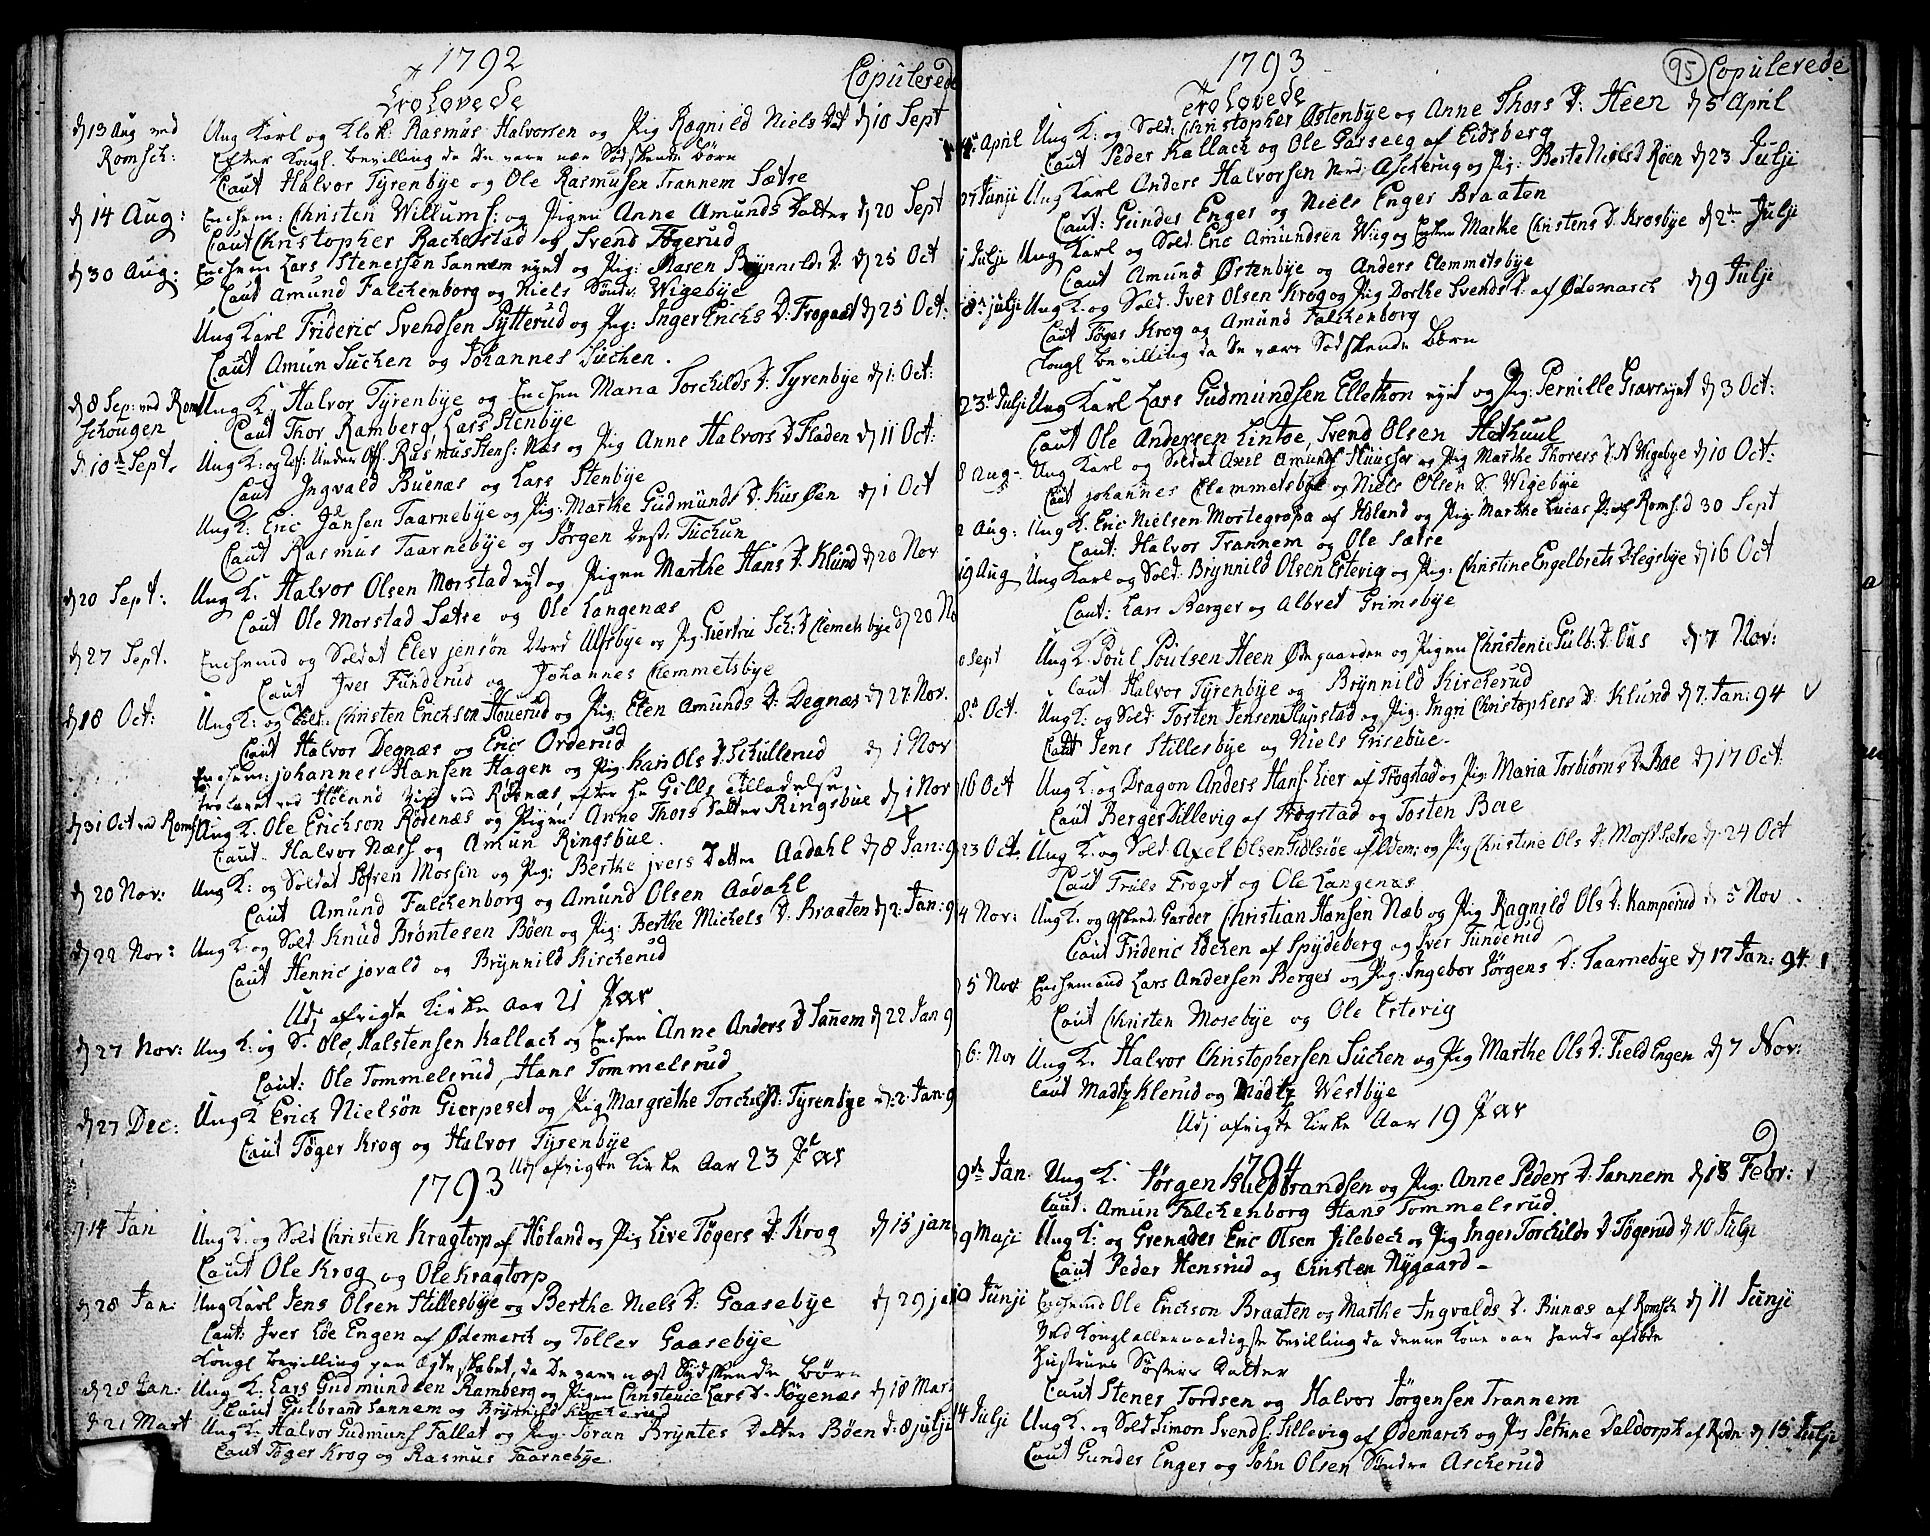 1792
Trolovede
Copulerede
d 13 Aug ved Ung Karl og Klok: Rasmus Halvorsen og Pig Ragnild Niels Dat d 10 Sept
Romsch: Efter Kongl. bevilling da De vare nær Sødskende børn
Caut Halvor Tyrenbye og Ole Rasmusen Trannem Sætre
d 14 Aug: Enchem: Christen Willums: og Pigen Anne Amunds Datter d 20 Sept
Caut Christopher Rachestad og Svend Tøgerud
d 30 Aug: Enchem Lars Stenessen Sannem og Pig: Maren Brynnilds D. d 25 Oct
Caut Amund Falchenborg og Niels Søndr. Wigebye
Ung Karl Frideric Svendsen Pytterud og Pig: Inger Erichs D: Frogaat d 25 Oct:
Caut Amun Suchen og Johannes Suchen.
d 8 Sep: ved Roms Ung K. Halvor Tyrenbye og Enchen Maria Torchilds D: Tyrenbye d 1: Oct:
Schougen Caut Thor Ramberg, Lars Stenbye
d 10 Sept. Ung K: og Under Off. Rasmus Stens: Næs og Pig Anne Halvors D Fladen d 11 Oct:
Caut Ingvald Buenæs og Lars Stenbye
Ung K: Eric Jansen Taarnebye og Pig: Marthe Gudmunds D. Kusøen d 1 Oct
Caut Rasmus Taarnebye og Jørgen Tuchun
d 20 Sept: Ung K: Halvor Olsen Morstad og Pigen Marthe Hans D Klund d 20 Nov
Caut Ole Morstad Sætre og Ole Langenæs
d 27 Sept. Enchemd og Soldat Elev jensøn Nord Ulfsbye og Pig. Giertru D Clemetsbye d 20 No
Caut Iver Funderud og Johannes Clemmetsbye
d 18 Oct: Ung K: og Christen Erichson Houerud og Pig: Elen Amunds D: Degnæs d 27. Nov.
Caut Halvor Degnæs og Eric Orderud
Enchem: johannes Hansen Hagen og Pig Kari Ols D. Schullerud d 1 Nov
Trolovet ved Høland ved Rødnæs, efter Gills Tilladelse
d 31 Oct ved Romsk Ung K. Ole Erichson Rødenæs og Pigen Anne Thors Datter Ringsbue d 1 Nov
Caut. Halvor Næss og Amun Ringsbue.
Ung K: og Soldat Søfren Mossin og Pig: Berthe jvers Datter Aadahl d 8 Jan: 9
d 20 Nov: Caut Amund Falchenborg og Amund Olsen Aadahl
d 22 Nov: Ung K: og Sold Knud Brøntesen Bøen og Pig: Berthe Michels D. Braaten d 2: Jan: 9
Caut Henric jovald og Brynnild Kircherud
Udj afvigte Kirke Aar 21 Par
d 27 Nov: Ung K: og S. Ole Halstensen Kallach og Enchen Anne Anders D Sannem d 22 Jan 9
Caut: Ole Tommelsrud, Hans Tommelsrud
d 27 Dec: Ung K Erich Nielsøn Gierpeset og Pig Margrethe Torchilds D: Tyrenbye d: 2: Jan: 9
Caut Tøger Krog og Halvor Tyrenbye
Udj afvigte Kirke Aar 23 Par
1793
d 14 Jan Ung K: og Sold Christen Kragtorp af Høland og Pig Live Tøgers D: Krog d 15 jan:
Caut Ole Krog og Ole Kragtorp
d 28 Jan: Ung Karl Jens Olsen Stillesbye og Berthe Niels D: Gaasebye d 29 jan
Caut: Iver Løe Engen af Ødemarch og Toller Gaasebye
Kongl bevilling paa Ægteskabet, da De vare næst Sydskende børn
d 28 Jan: Ung K: Lars Gudmundsen Ramberg og Pigen Christence Lars D. Høgenæs d 18 Mart
Caut Gulbrand Sannem og Brynnild Kircherud
d 21 Mart Ung K. Halvor Gudmuns Fallet og Pig: Joran Bryntes Datter Bøen d: 8 julji
Caut Tøger Krog og Rasmus Taarnebye
1793
Trolovede
95
Copulerede
4 April Ung K: og Sold: Christopher Østenbye og Anne Thors D: Heen d 5 April
Caut Peder Kallach og Ole Gasseeg af Eidsberg
27 Junji Ung Karl Anders Halvorsen Nord: Ascherug og Pig: Berte Niels D Røen d 23 Julji
Caut: Gunder Enger og Niels Enger Braaten
1 Julji Ung Karl og Sold. Eric Amundsen Wiig og Marthe Christens D. Krosbye d 2 Julji
Caut Amund Østenbye og Anders Clemmetsbye
8 julji Ung K. og Sold. Iver Olsen Krog og Pig Dorthe Svends D. af Ødemarch d 9 Julji
Caut Tøger Krog og Amund Falchenborg
Kongl bevilling da De vare Sødskende Børn
23 Julji Ung Karl Lars Gudmundsen Ellethon og Pig: Pernille d 3 Oct:
Caut Ole Andersen Lintoe, Svend Olsen
8 Aug - Ung Karl og Soldat Axel Amunds og Pig Marthe Thorers D. N Wigebye d 10 Oct:
Caut johannes Clemmetsbye og Niels Olsen S. Wigebye
2 Aug: Ung K. Eric Nielsen Mortegropa af Høland og Pig Marthe Lucas D: af Roms. d 30 Sept
Caut: Halvor Trannem og Ole Sætre
19 Aug Ung Karl og Sold: Brynnild Olsen Estevig og Pig: Christine Engelbrets D Hegsbye d 16 Oct
Caut: Lars Berger og Albret Grimsbye
0 Sept Ung K. Poul Poulsen Heen Ødegaarden og Pigen Christence Gulb: D: Ous d 7 Nov:
Caut Halvor Tyrenbye og Brynnild Kircherud
8 Oct. Ung K: og Sold. Tosten Jensen Slupstad og Pig: Ingri Christophers D: Klund d 7. Jan: 94 √
Caut Jens Stillesbye og Niels Grisebue.
16 Oct Ung K: og Dragon Anders Hans: Lier af Trøgstad og Pig: Maria Torbiørns D Bae d 17 Oct:
Caut Berger Dillevig af Trøgstad og Tosten Bae
23 Oct. Ung K: og Sold. Axel Olsen af Ødem: og Pig Christine Ols D: Morst Sætre d. 24 Oct
Caut Truls Frogot og Ole Langenæs
4 Nov: Ung K: og Garder Christian Hansen Næb og Pig Ragnild Ols D: Kamperud d 5 Nov.
Caut Frideric af Spydeberg og Iver Funderud
5 Nov Enchemand Lars Andersen Berger og Pig. Ingebor Jørgens D: Taarnebye d 17 Jan: 94
Caut Christen Mosebye og Ole Estevig
6: Nov Ung K. Halvor Christophersen Suchen og Pig Marthe Ols D: Field Engen d 7 Nov:
Caut Madtz Klerud og Madtz Westbye
Udj afvigte Kirke Aar 19 Par
1794
9 Jan. Ung K. Jørgen Hildbrandsen og Pig: Anne Peders D: Sannem d 18 Febr: √
Caut. Amun Falchenborg Hans Tommelsrud
9 Maji Ung K: og Grenader Eric Olsen Jilebech og Pig Inger Torchilds D Tøgerud d 10 Julji
Caut Peder Hensrud og Christen Nygaard -
10 Junji Enchemd Ole Erichson Braaten og Marthe Ingvalds D. Bunæs af Romsch d 11 Junji
Ved Kongl allernaadigste bevilling da denne Kone var hands afdøde
Hustrues Søsters Datter
Caut Stener Tordsen og Halvor Jørgensen Trannem
14 Julji Ung K. og Sold Simon Svends: Sillevig af Ødemarch og Pig Daldorph af Rødn: d 15 Julji
Caut Gunder Enger og John Olsen Søndre Ascherud